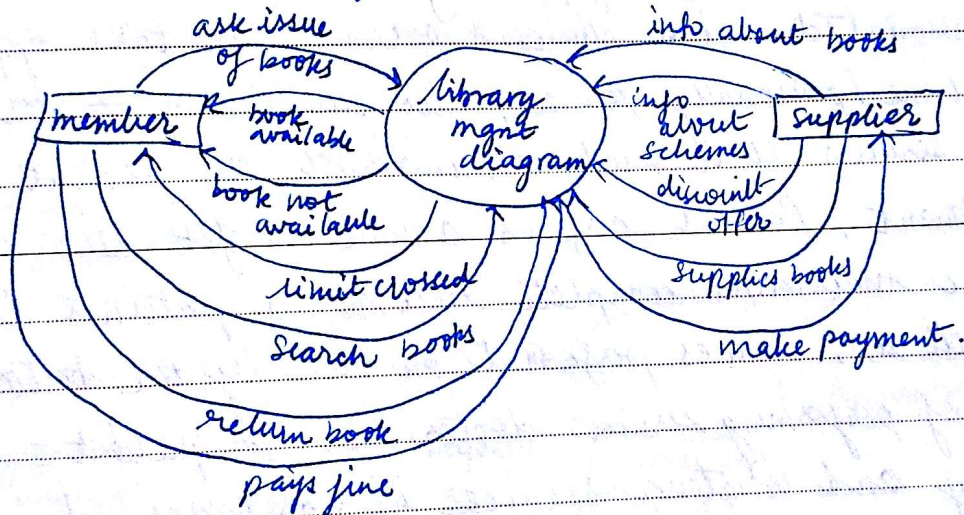 ask issue
of books
info about books
member
book
available
library
mgnt
diagram
info
about
schemes
supplier
book not
available
discount
offer
limit crossed
supplies books
search books
make payment.
return book
pays fine